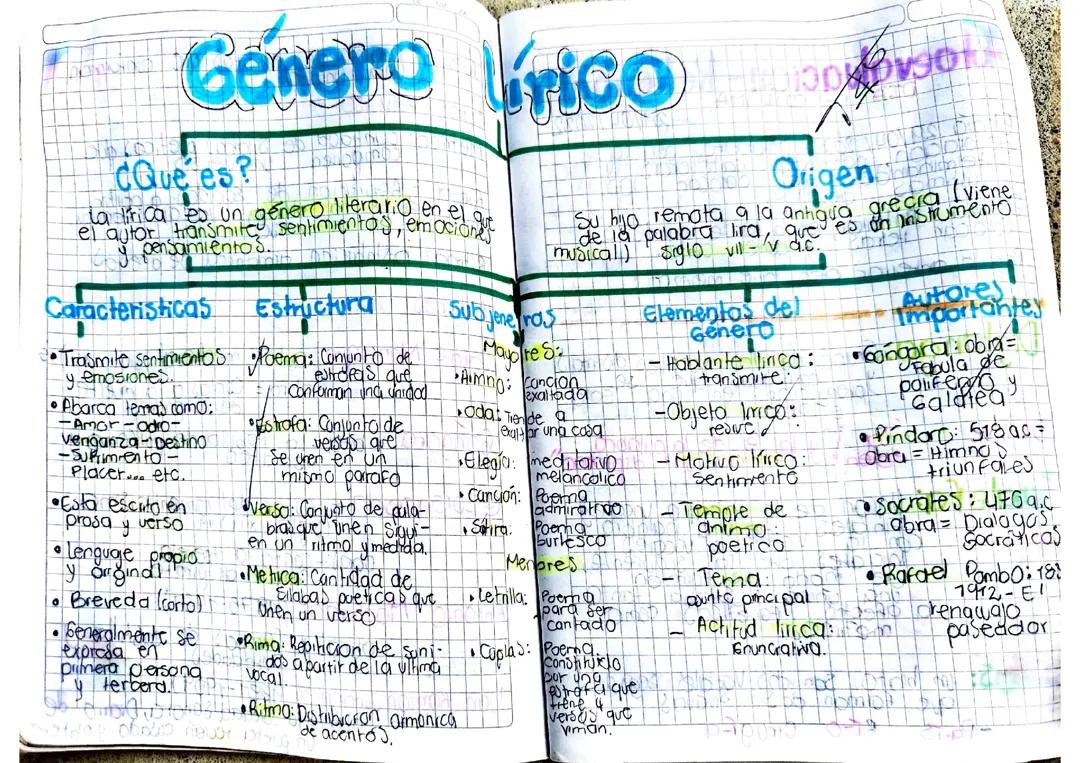 Género lírico
¿Qué es?
la lírica es un género literario en el que
el autor transmite sentimientos, emociones
y pensamientos.
Origen
Su hijo remota a la antigua grecia (viene
de la palabra lira, que es un instrumento
musical) siglo vii - iv a.c.
Caracteristicas
• Trasmite sentimientos
y emosiones.
• Abarca temas como:
- Amor - odio -
venganza - Destino
- Sufrimiento -
Placer... etc.
• Está escrito en
prosa y verso
• Lenguaje propio
y original
• Breveda (corto)
• Generalmente se
expresa en
primera persona
y tercera.
Estructura
• Poema: Conjunto de
estrofas que
conforman una unidad
• Estrofa: Conjunto de
versos que
se unen en un
mismo parafo
• Verso: Conjunto de pala-
bras que unen sigui-
en un ritmo y medida.
• Metrica: Cantidad de
silabas poeticas que
unen un verso
• Rima: Repiticion de soni-
dos a partir de la ultima
vocal
• Ritmo: Distribucion armonica
de acentos.
Subjeneros
Mayores:
• Himno: cancion
exaltada
• oda: Tiende a
exaltar una cosa
• Elegia: meditativo
melancolico
• Canción: Poema
admirativo
• Sátira: Poema
burlesco
Menores
• Letrilla: Poema
para ser
cantado
• Coplas: Poema
constituido
por una
estrofa que
tiene 4
versos que
riman.
Elementos del
Género
- Hablante lirico:
transmite.
- Objeto lirico:
resive
- Motivo lírico:
Sentimiento
- Temple de
animo:
poetico
- Tema:
asunto principal
- Actitud lirica:
Enunciativa.
Autores
Importantes
• Góngora: obra=
Fabula de
polifemo y
Galatea
• Píndaro: 518 a.c =
Obra = Himnos
triunfales
• Socrates: 470 a.c
obra = Dialogos
Socráticos
• Rafael Pombo:
1912 - El
renacuajo
paseador